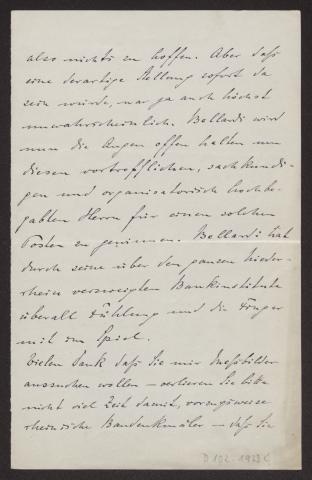 also nichts zu hoffen. Aber daß
eine derartige Stellung sofort da
sein würde, war ja auch höchst
unwahrscheinlich. Bellardi wird
nun die Augen offen halten um
diesen vortrefflichen, sachkundi-
gen und organisatorisch hochbe-
gabten Herrn für einen solchen
Posten zu gewinnen. Bellardi hat
durch seine über den ganzen Nieder-
rhein verzweigten Bankinstitute
überall Fühlung und die Finger
mit im Spiel.
Vielen Dank daß Sie mir Meßbilder
aussuchen wollen – verlieren Sie bitte
nicht viel Zeit damit, vorzugsweise
rheinische Baudenkmäler – daß Sie
D 102 - 1923 C